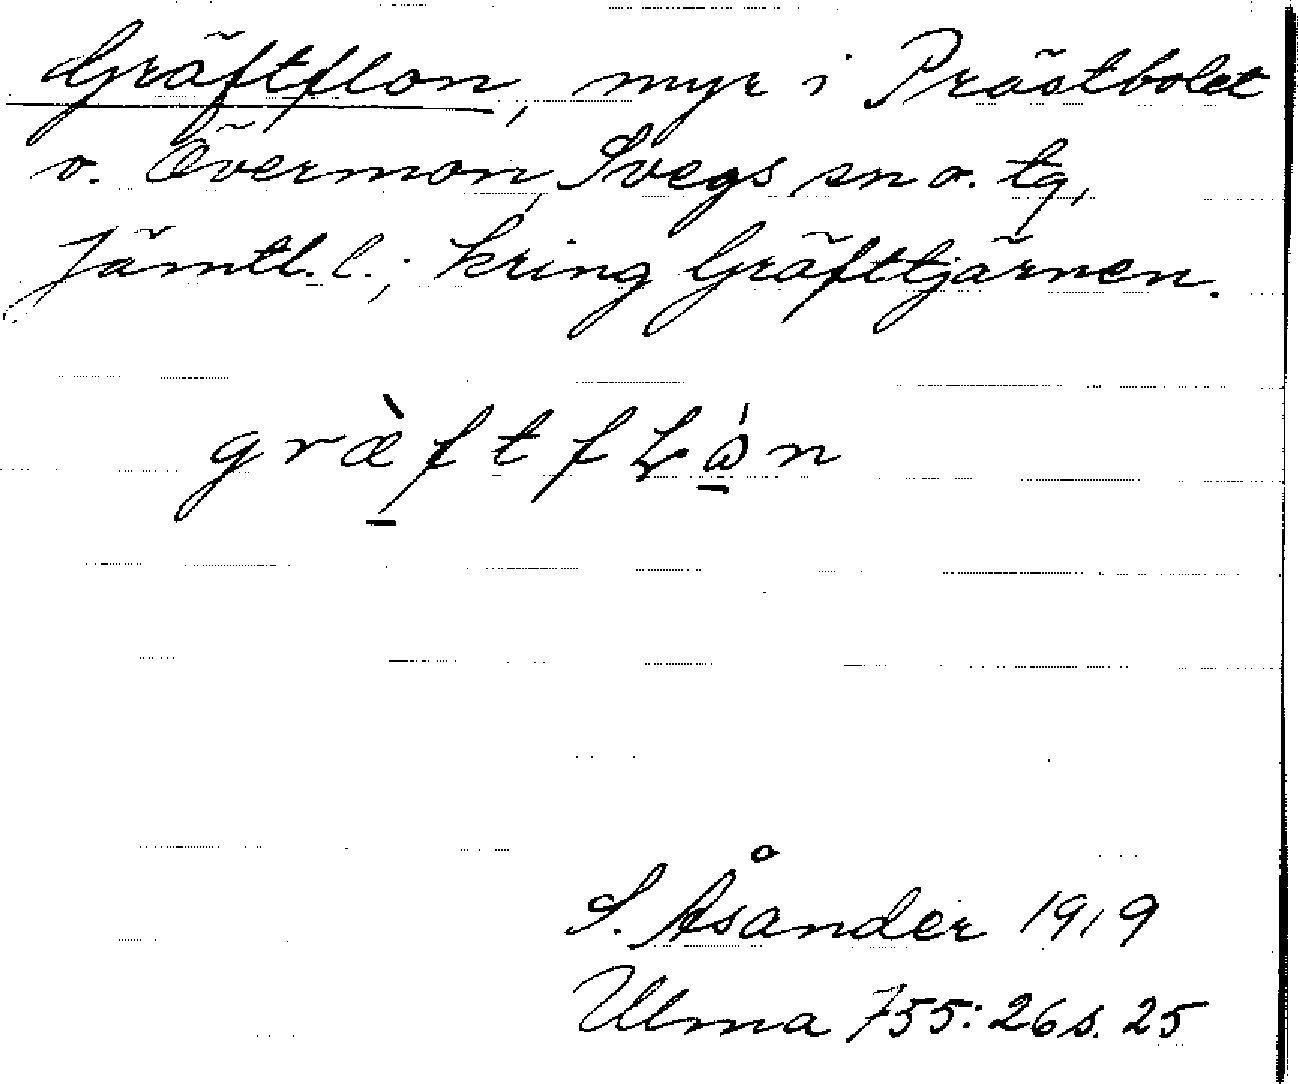 Gräftflon, myr i Prästbolet
o. Övermon, Svegs sn o. tg,
Jämtl. l.; kring Gräfttjärnen.
græ̀ftfLån
S. Åsander 1919
Ulma 755:26 s. 25